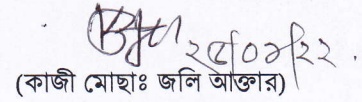 ২৫/০৮/২২.
(কাজী মোছাঃ জলি আক্তার)